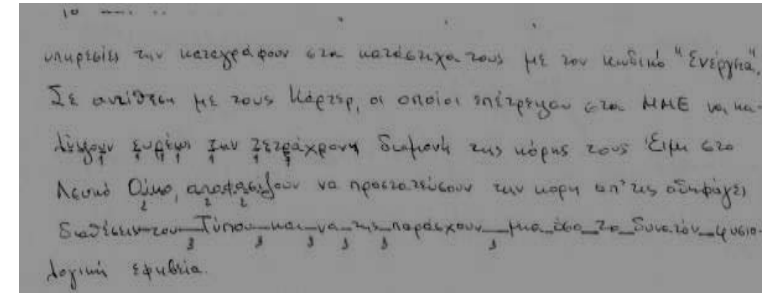 υπηρεσίες την καταγράφουν στα κατάστιχα τους με τον κωδικό "Ενέργεια".
Σε αντίθεση με τους Κάρτερ, οι οποίοι επέτρεψαν στα ΜΜΕ να κα-
λύψουν ευρέως την τετράχρονη διαμονή της κόρης τους Έιμι στο
Λευκό Οίκο, αποφασίζουν να προστατεύσουν την κόρη απ' τις αδηφάγες
διαθέσεις του Τύπου και να της παράσχουν μια όσο το δυνατόν φυσιο-
λογική εφηβεία.